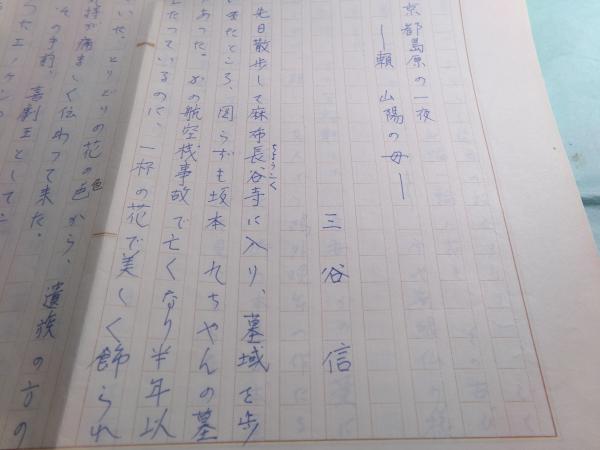 京都島原の一夜
―頼 山陽の母―
三谷 信
先日散歩して麻布長谷寺に入り、墓域を歩
ちょうこく
いたところ、図らずも坂本 九ちゃんの墓
あった。かの航空機事故で亡くなり半年以
たっているのに、一杯の花で美しく飾られ
いた。とりどりの花の色から、遺族の方の
色
持が痛ましく伝わって来た。
その手前、喜劇王として
ったエノケン